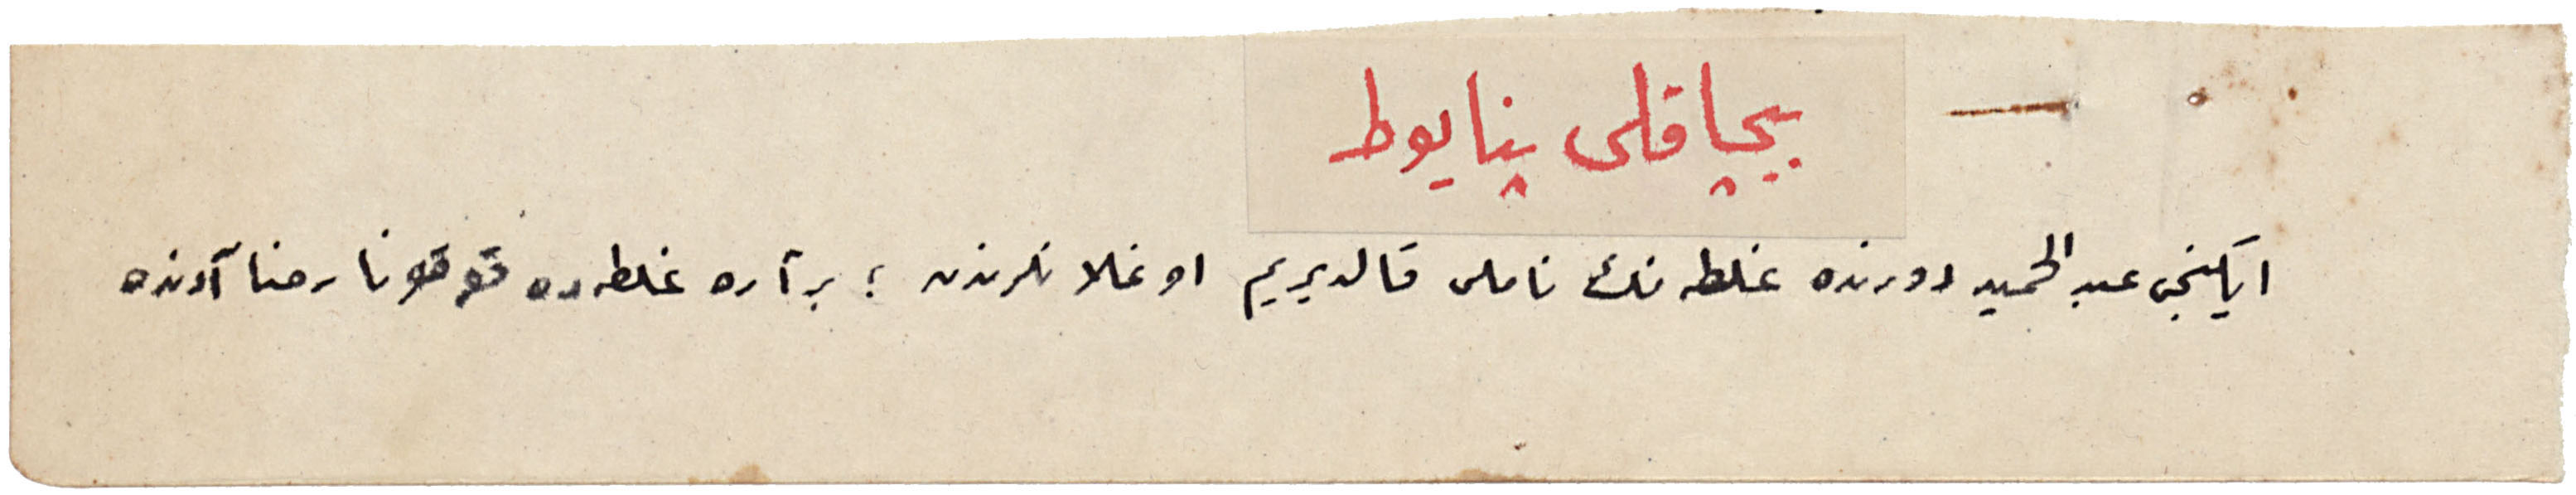 بچاقلی پنایوط
ایكنجی عبدالحمید دورنده غلطه‌نك ناملی قالدیریم اوغلانلرندن ؛ بر آره غلطه‌ده قوقونا رضا آدنده